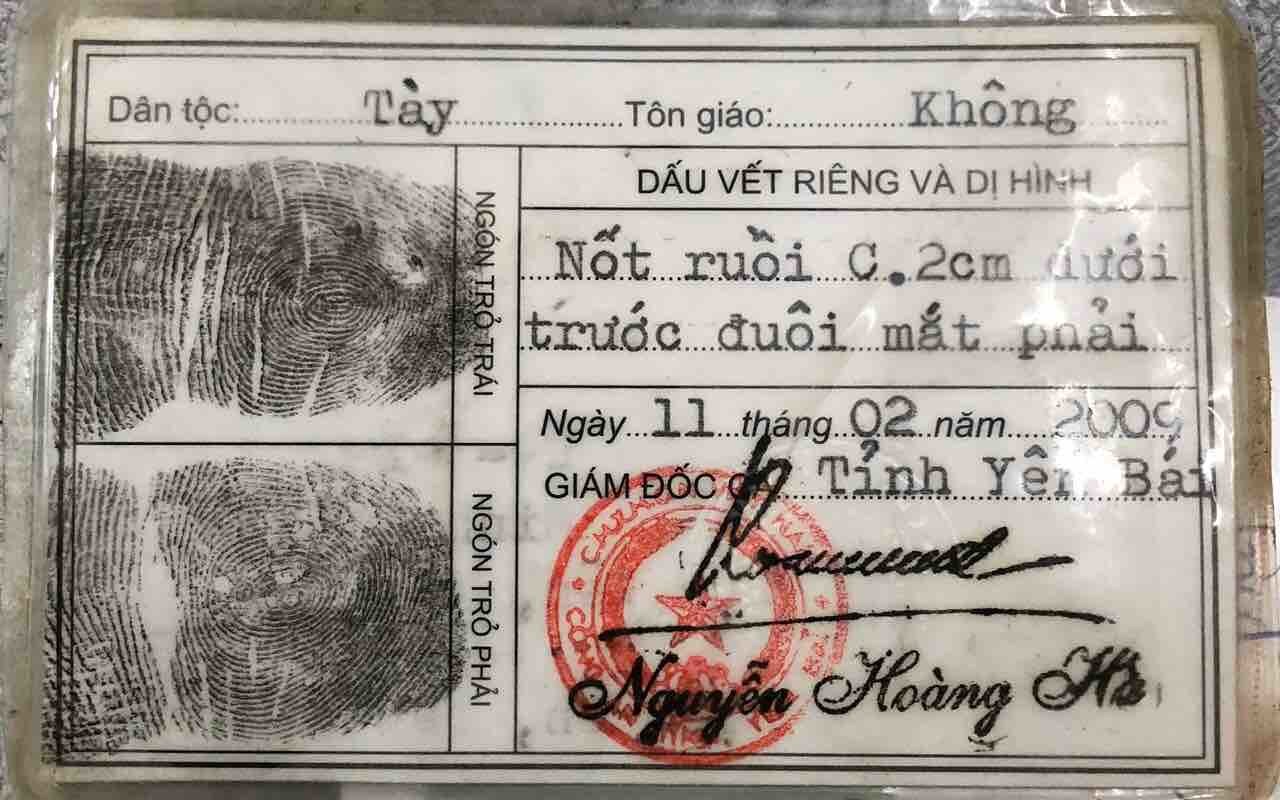 Dân tộc: Tày Tôn giáo: Không
DẤU VẾT RIÊNG VÀ DỊ HÌNH
Nốt ruồi C.2cm dưới
trước đuôi mắt phải
NGÓN TRỎ TRÁI
Ngày 11 tháng 02 năm 2009
GIÁM ĐỐC CA Tỉnh Yên Bái
NGÓN TRỎ PHẢI
Nguyễn Hoàng Hà